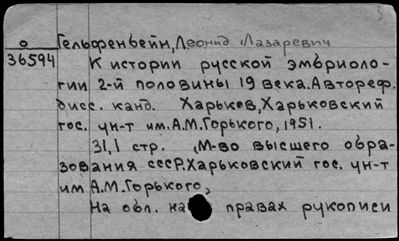 о Гельфенбейн, Леонид Лазаревич
36594 К истории русской эмбриоло-
гии 2-й половины 19 века. Автореф.
дисс. канд. Харьков, Харьковский
гос. ун-т им. А.М.Горького, 1951.
31,1 стр. М-во высшего обра-
зования СССР. Харьковский гос. ун-т
им А.М.Горького,
На обл. на правах рукописи